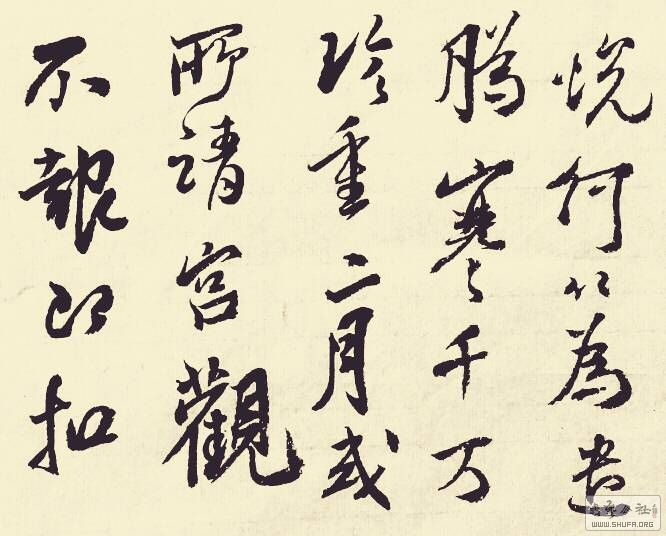 怳何以為遣
賸寒千万
珍重二月或
所請宮觀
不報即扣
WWW.SHUFA.ORG